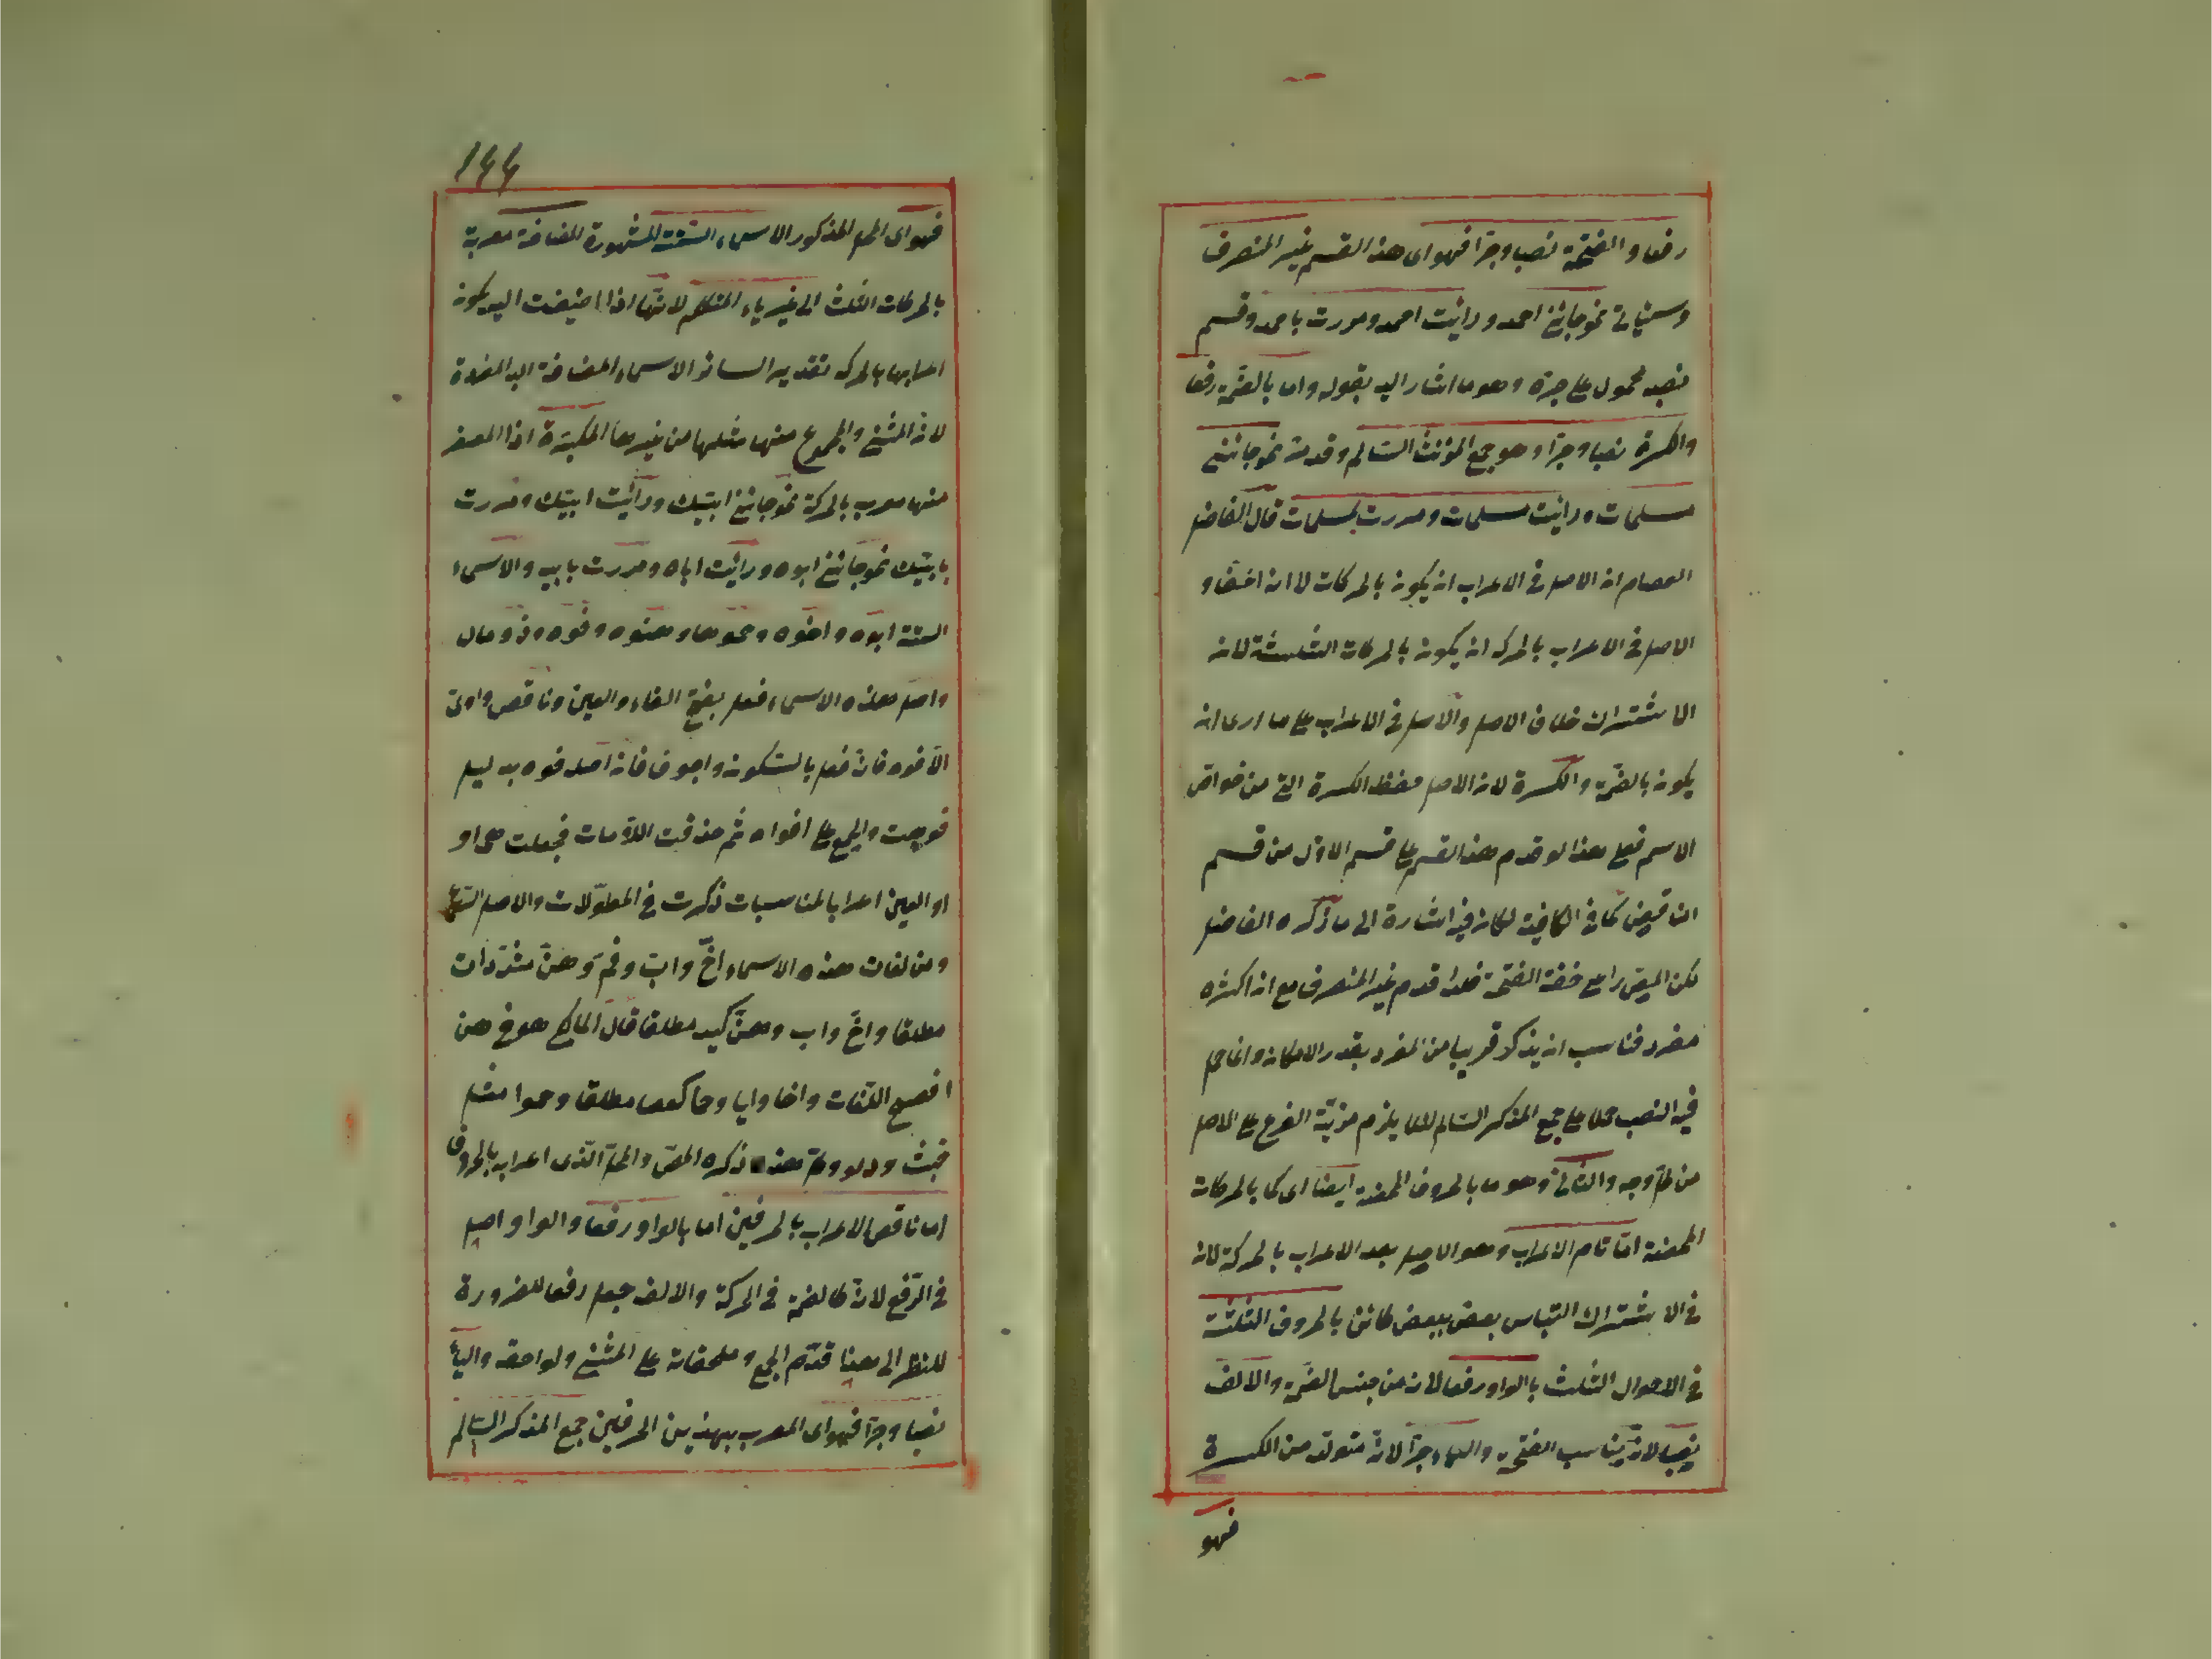 رفعا والفتحة نصبا وجرّا فهو اى هذا القسم غير المنصرف
وسيئاتى نحو جائنى احمد ورائيت احمد ومررت باحمد وقسم
نصبه محمول على جره وهو ما اشار اليه بقوله واما بالضمّة رفعا
والكسرة نصبا وجرّا وهو جمع المؤنث السالم وقد مرّ نحو جائتنى
مسلمات ورائيت مسلمات ومررت بمسلمات قال الفاضل
العصام ان الاصل فى الاعراب ان يكون بالحركات لا انه اخف و
الاصل فى الاعراب بالحركه ان يكون بالحركات الثلثة لانه
الاشتراك خلاف الاصل والاصل فى الاعراب على ما ارى انه
يكون بالضمّة والكسرة لان الاصل حفظ الكسرة التى من خواص
الاسم فعلى هذا لو قدم هذا القسم على قسم الاول من قسم
الناقص كما فى الكافية لكان فيه اشارة الى ما ذكره الفاضل
لكن المص راعى خفة الفتحة فلذا قدم غير المنصرف مع ان اكثره
مفرد فناسب ان يذكر قريبا من المفرد بقدر الامكان وانما حمل
فيه النصب حملا على جمع المذكر السالم لئلا يلزم مزيّة الفرع على الاصل
من كل وجه والثانى وهو ما بالحروف المحضة ايضا اى كما بالحركات
المحضة امّا تام الاعراب وهو الاصل بعد الاعراب بالحركة لانه
فى الاشتراك التباس بعض ببعض كائن بالحروف الثلثة
فى الاحوال الثلث بالواو رفعا لانه من جنس الضمّة والالف
نصبا لانّه يناسب الفتحة والياء جرّا لانّه متولد من الكسرة
فهو
١٤٤
فهو اى المحل المذكور الاسماء الستة المشهورة المضافة معربة
بالحركات الثلث الى غير ياء المتكلم لانّها اذا اضيفت اليه يكون
اعرابها بالحركه تقديرا لسائر الاسماء المضافة اليه المفردة
لانه المثنى والمجموع منها مثلهما من غيرها المكبّرة اذا المصغر
منها معرب بالحركة نحو جائنى ابيّك ورائيت ابيّك ومررت
بابيّك نحو جائنى ابوه ورائيت اباه ومررت بابيه والاسماء
الستة ابوه واخوه وحموها وهنوه وفوه وذو مال
واصل هذه الاسماء فعل بفتح الفاء والعين وناقص واوىّ
الا فوه فانّه فعل بالسكون واجوف فانه اصله فوه بدليل
فويهة والجمع على افواه ثم حذفت اللامات فجعلت هى او
او العين اعرابا لمناسبات ذكرت فى المطوّلات والاصل
ومن لغات هذه الاسماء اخّ وابّ وفمّ وهنّ مشدّدات
مطلقا واخ واب وهن كيد مطلقا قال المالكى هو فى هن
افصح اللغات واخا وابا وحما كعصا مطلقا وحموا مثل
خبث ودلو وكل هذه ذكره المصّ والمحل الّذى اعرابه بالحروف
اما ناقص الاعراب بالحرفين اما بالواو رفعا والواو اصل
فى الرّفع لانه كالضمّة فى الحركة والالف جعل رفعا للضرورة
للنظر الى هنا قدّم الجمع وملحقاته على المثنى ولواحقه والياء
نصبا وجرّا فهو اى المعرب بهذين الحرفين جمع المذكر السالم